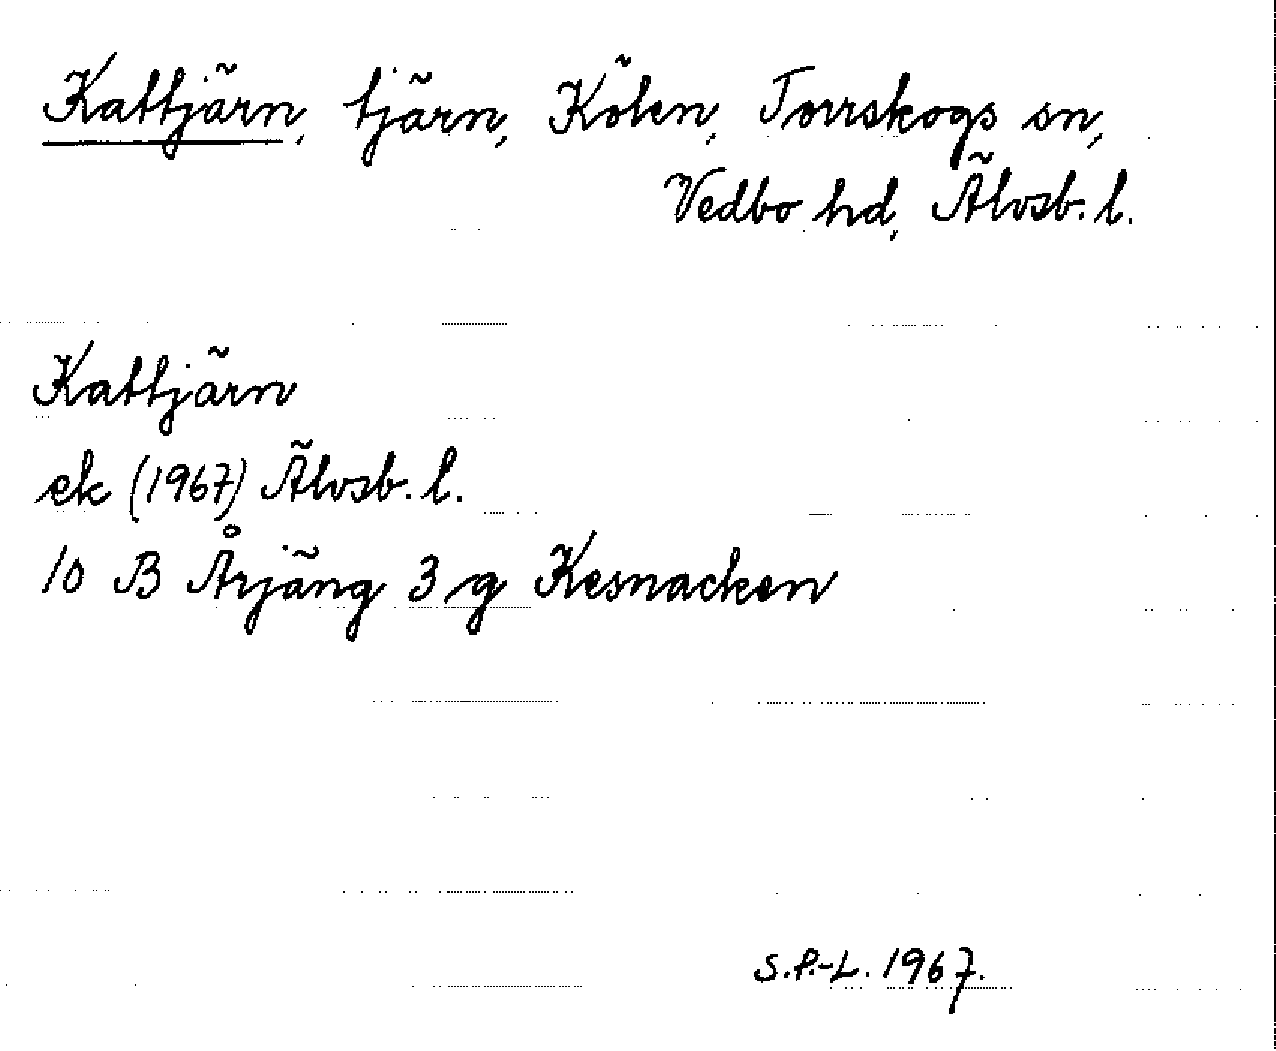 Kattjärn, tjärn, Kölen, Torrskogs sn,
Vedbo hd, Älvsb. l.
Kattjärn
ek (1967) Älvsb. l.
10 B Årjäng 3 g Kesnacken
S.P.-L. 1967.